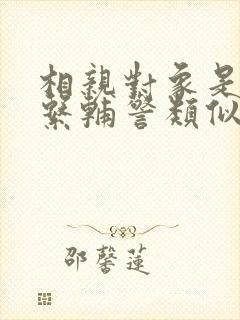 相親對象是
緊輔警類似
邵馨蓮